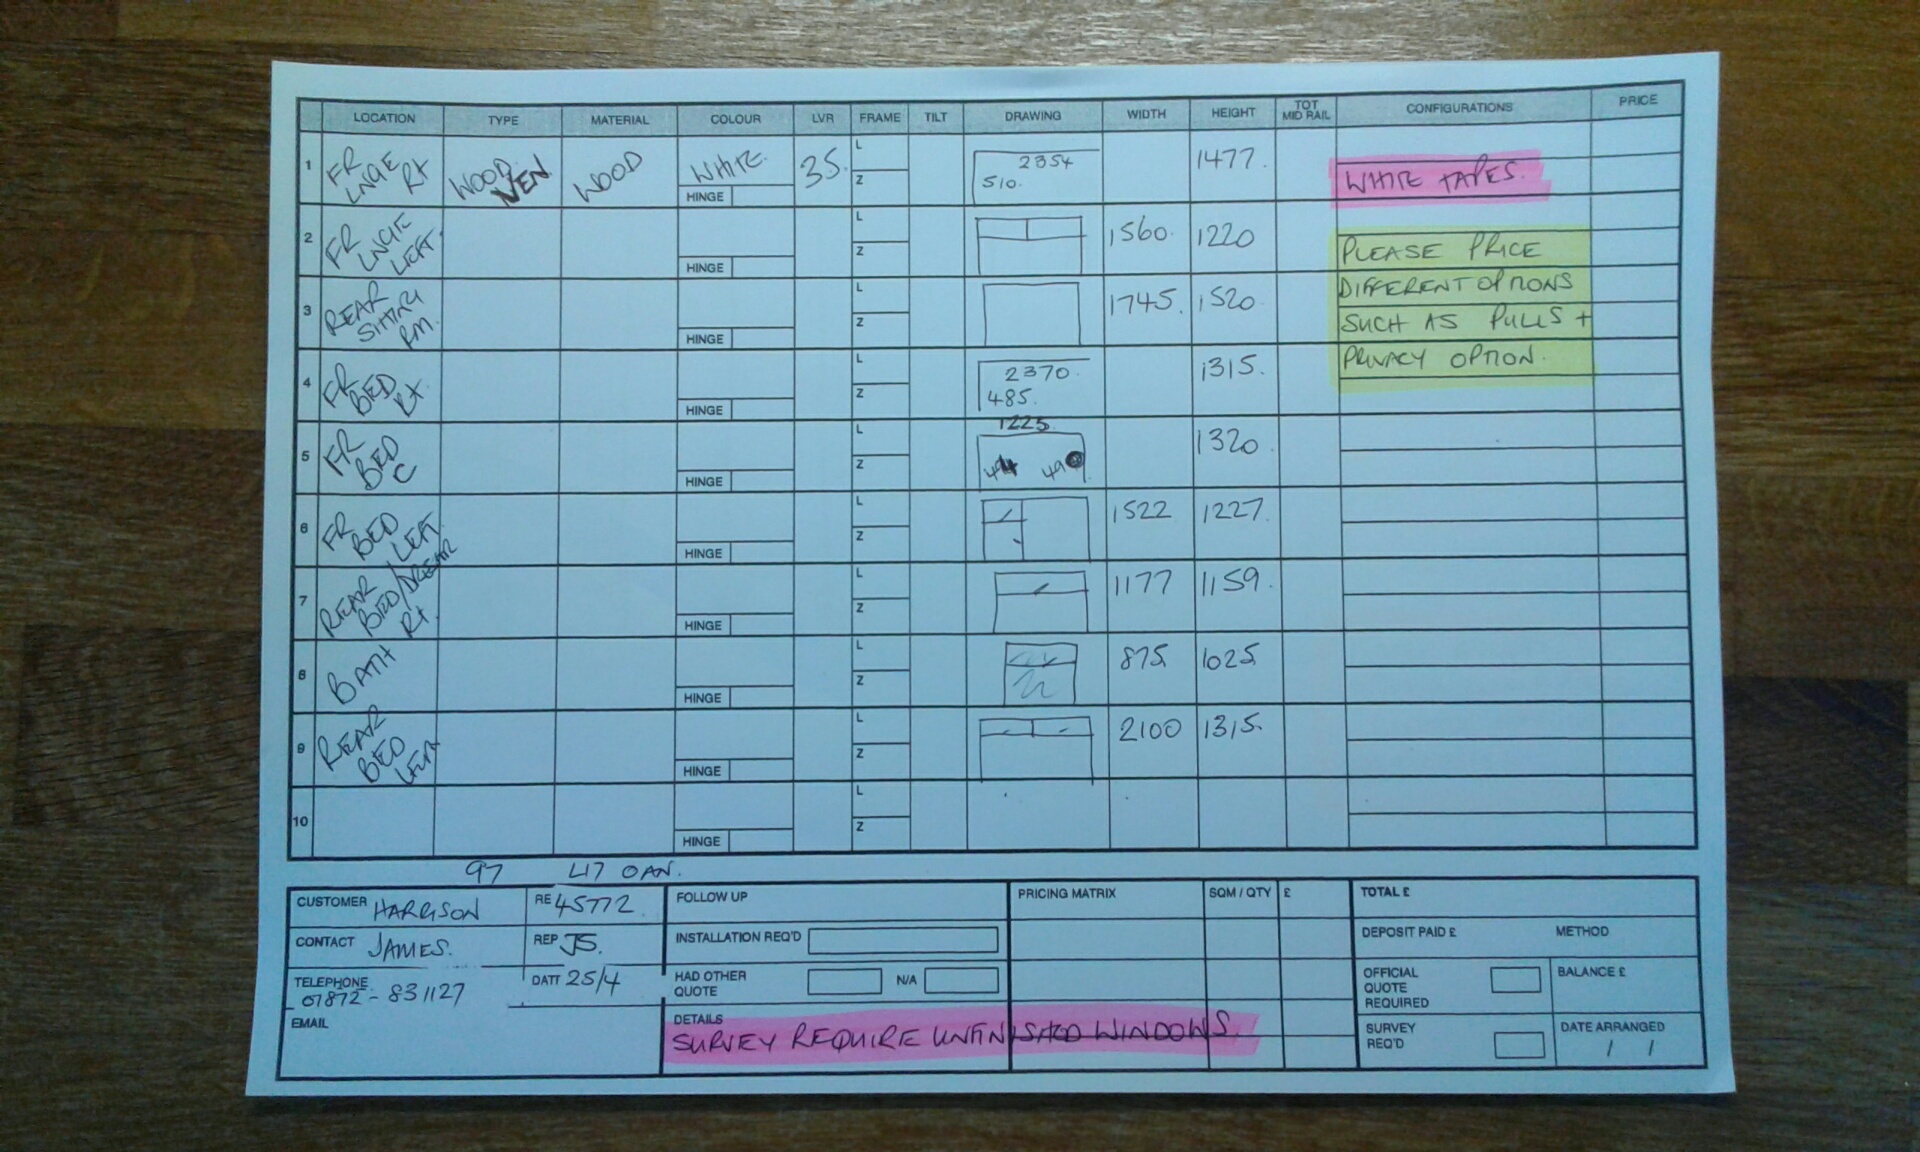 LOCATION TYPE MATERIAL COLOUR LVR FRAME TILT DRAWING WIDTH HEIGHT TOT MID RAIL CONFIGURATIONS PRICE
1 FR LNGE RT WOOD VEN WOOD WHITE. HINGE 35. L Z 2354 510. 1477. WHITE TAPES.
2 FR LNGE LEFT. HINGE L Z 1560. 1220 PLEASE PRICE
3 REAR RM. HINGE L Z 1745. 1520. DIFFERENT OPTIONS
SUCH AS PULLS +
4 FR BED RT. HINGE L Z 2370. 485. 1315. PRIVACY OPTION.
5 FR BED C HINGE L Z 1225. 1320
6 FR BED LEFT. HINGE L Z 1522 1227.
7 REAR BED/ RT. HINGE L Z 1177 1159.
8 BATH HINGE L Z 875 1025
9 REAR BED LEFT HINGE L Z 2100 1315.
10 HINGE L Z
97 L17 0AN.
CUSTOMER HARRISON RE 45772. FOLLOW UP PRICING MATRIX SQM / QTY £ TOTAL £
CONTACT JAMES. REP JS. INSTALLATION REQ'D DEPOSIT PAID £ METHOD
TELEPHONE 07872 - 831127 DATE 25/4 HAD OTHER QUOTE N/A OFFICIAL QUOTE REQUIRED BALANCE £
EMAIL DETAILS SURVEY REQD DATE ARRANGED / /
SURVEY REQUIRE UNFINISHED WINDOWS.